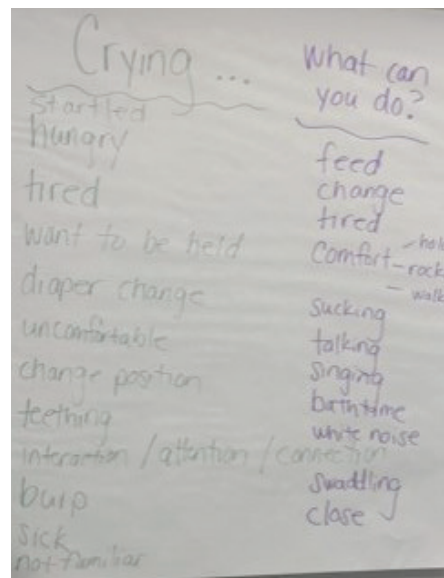 Crying ...
startled
hungry
tired
want to be held
diaper change
uncomfortable
change position
teething
interaction / attention / connection
burp
sick
not familiar
What can
you do?
feed
change
tired
Comfort - hold
- rock
- walk
sucking
talking
singing
white noise
swaddling
close